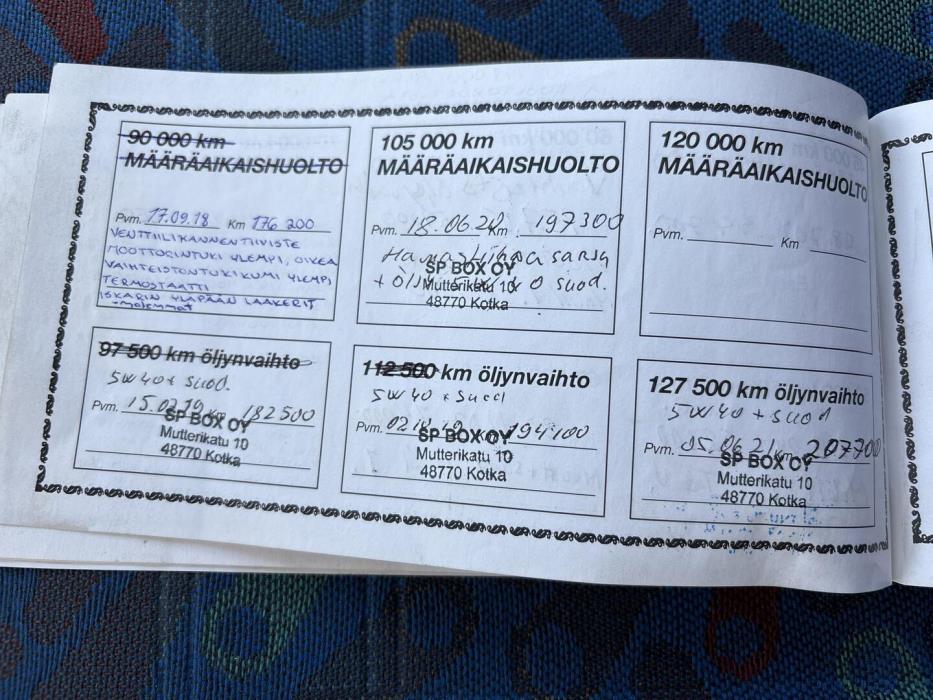 90 000 km
MÄÄRÄAIKAISHUOLTO
Pvm. 17.09.18 Km 176 200
VENTTIILIKANNEN TIIVISTE
MOOTTORINTUKI YLEMPI, OIKEA
VAIHTEISTONTUKIKUMI YLEMPI
TERMOSTAATTI
ISKARIN YLÄPÄÄN LAAKERIT
-molemmat
105 000 km
MÄÄRÄAIKAISHUOLTO
Pvm. 18.06.20 Km 197300
Hammashihna sarja
+ öljy suod.
SP BOX OY
Mutterikatu 10
48770 Kotka
120 000 km
MÄÄRÄAIKAISHUOLTO
Pvm. Km
97 500 km öljynvaihto
5W40 + suod.
Pvm. 15.02.19 Km 182500
SP BOX OY
Mutterikatu 10
48770 Kotka
112 500 km öljynvaihto
5W40 + suod
Pvm. Km 194100
SP BOX OY
Mutterikatu 10
48770 Kotka
127 500 km öljynvaihto
5W40 + suod
Pvm. 05.06.21 Km 207700
SP BOX OY
Mutterikatu 10
48770 Kotka